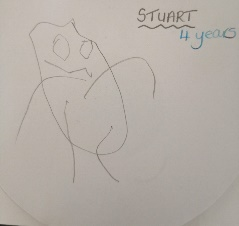 STUART
4 years